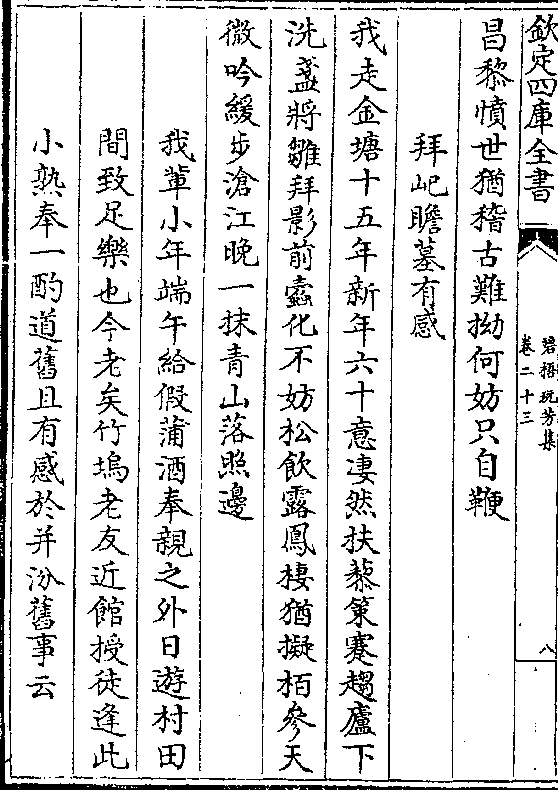 欽定四庫全書
碧梧玩芳集
卷二十三
八
昌黎憤世猶稽古難拗何妨只自鞭
拜屺瞻墓有感
我走金塘十五年新年六十意凄然扶藜策蹇趨廬下
洗盞將雛拜影前蠧化不妨松飲露鳳棲猶擬栢參天
微吟緩步滄江晚一抹青山落照邊
我輩小年端午給假蒲酒奉親之外日遊村田
間致足樂也今老矣竹塢老友近館授徒逢此
小熟奉一酌道舊且有感於并汾舊事云